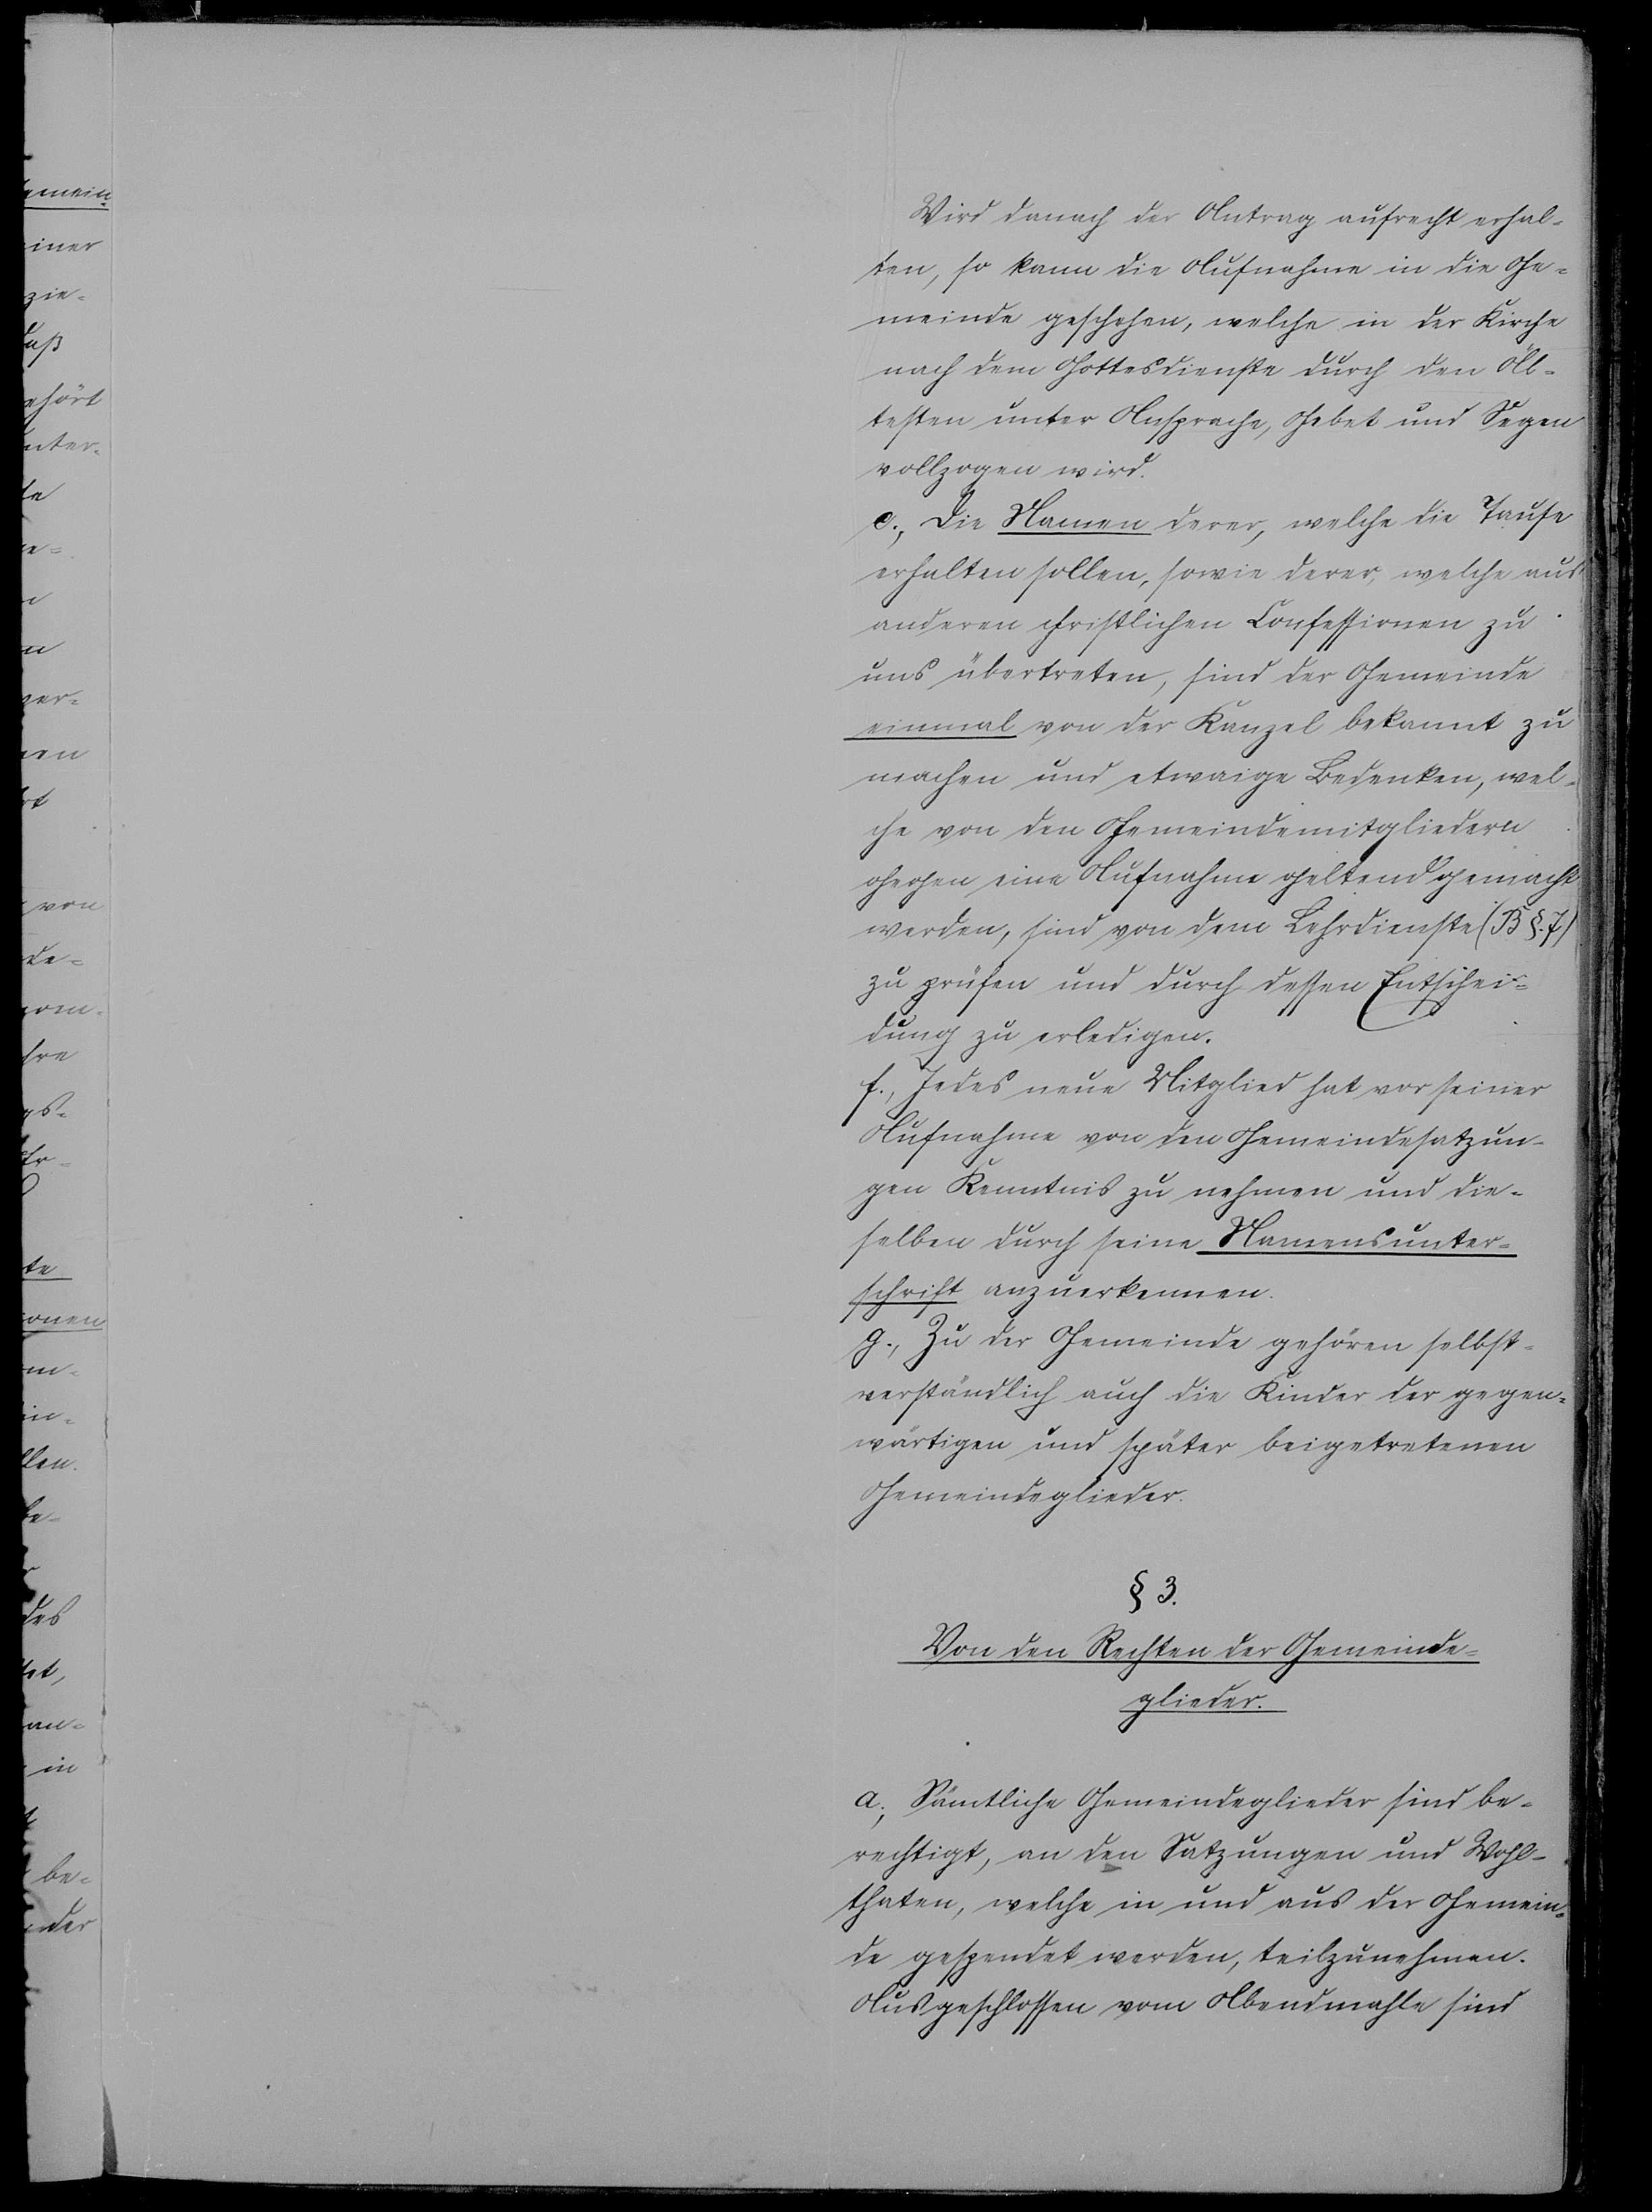 Wird danach der Antrag aufrecht erhal-
ten, so kann die Aufnahme in die Ge-
meinde geschehen, welche in der Kirche
nach dem Gottesdienste durch den Äl-
testen unter Ansprache, Gebet und Segen
vollzogen wird.
e., Die Namen derer, welche die Taufe
erhalten sollen, sowie derer, welche aus
anderen christlichen Confessionen zu
uns übertreten, sind der Gemeinde
einmal von der Kanzel bekannt zu
machen und etwaige Bedenken, wel-
che von den Gemeindemitgliedern
gegen eine Aufnahme geltend gemacht
werden, sind von dem Lehrdienste (B §. 7)
zu prüfen und durch dessen Entschei-
dung zu erledigen.
f., Jedes neue Mitglied hat vor seiner
Aufnahme von den Gemeindesatzun-
gen Kenntnis zu nehmen und die-
selben durch seine Namensunter-
schrift anzuerkennen.
g., Zu der Gemeinde gehören selbst-
verständlich auch die Kinder der gegen-
wärtigen und später beigetretenen
Gemeindeglieder.
§ 3.
Von den Rechten der Gemeinde-
glieder.
a., Sämtliche Gemeindeglieder sind be-
rechtigt, an den Satzungen und Wohl-
thaten, welche in und aus der Gemein-
de gespendet werden, teilzunehmen.
Ausgeschlossen vom Abendmahle sind